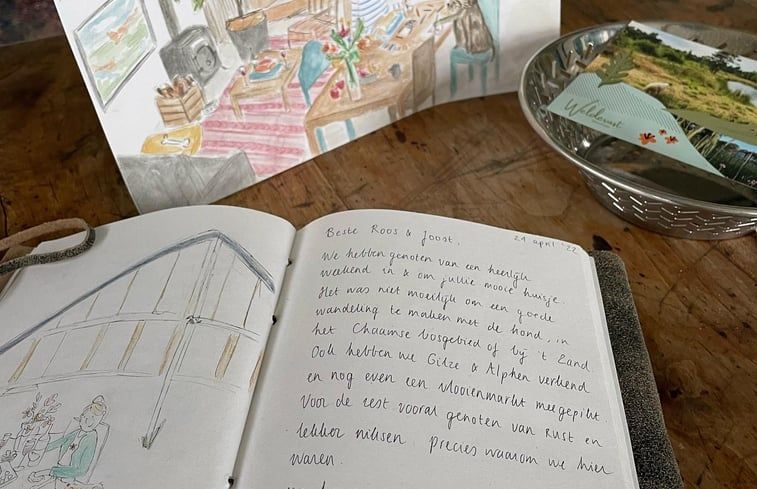 Welderust
Beste Roos & Joost,
21 april '22
We hebben genoten van een heerlijk
weekend in & om jullie mooie huisje.
Het was niet moeilijk om een goede
wandeling te maken met de hond, in
het Chaamse bosgebied of bij 't Zand.
Ook hebben we Gilze & Alphen verkend
en nog even een vlooienmarkt meegepikt.
Voor de rest vooral genoten van rust en
lekker niksen. precies waarom we hier
waren.